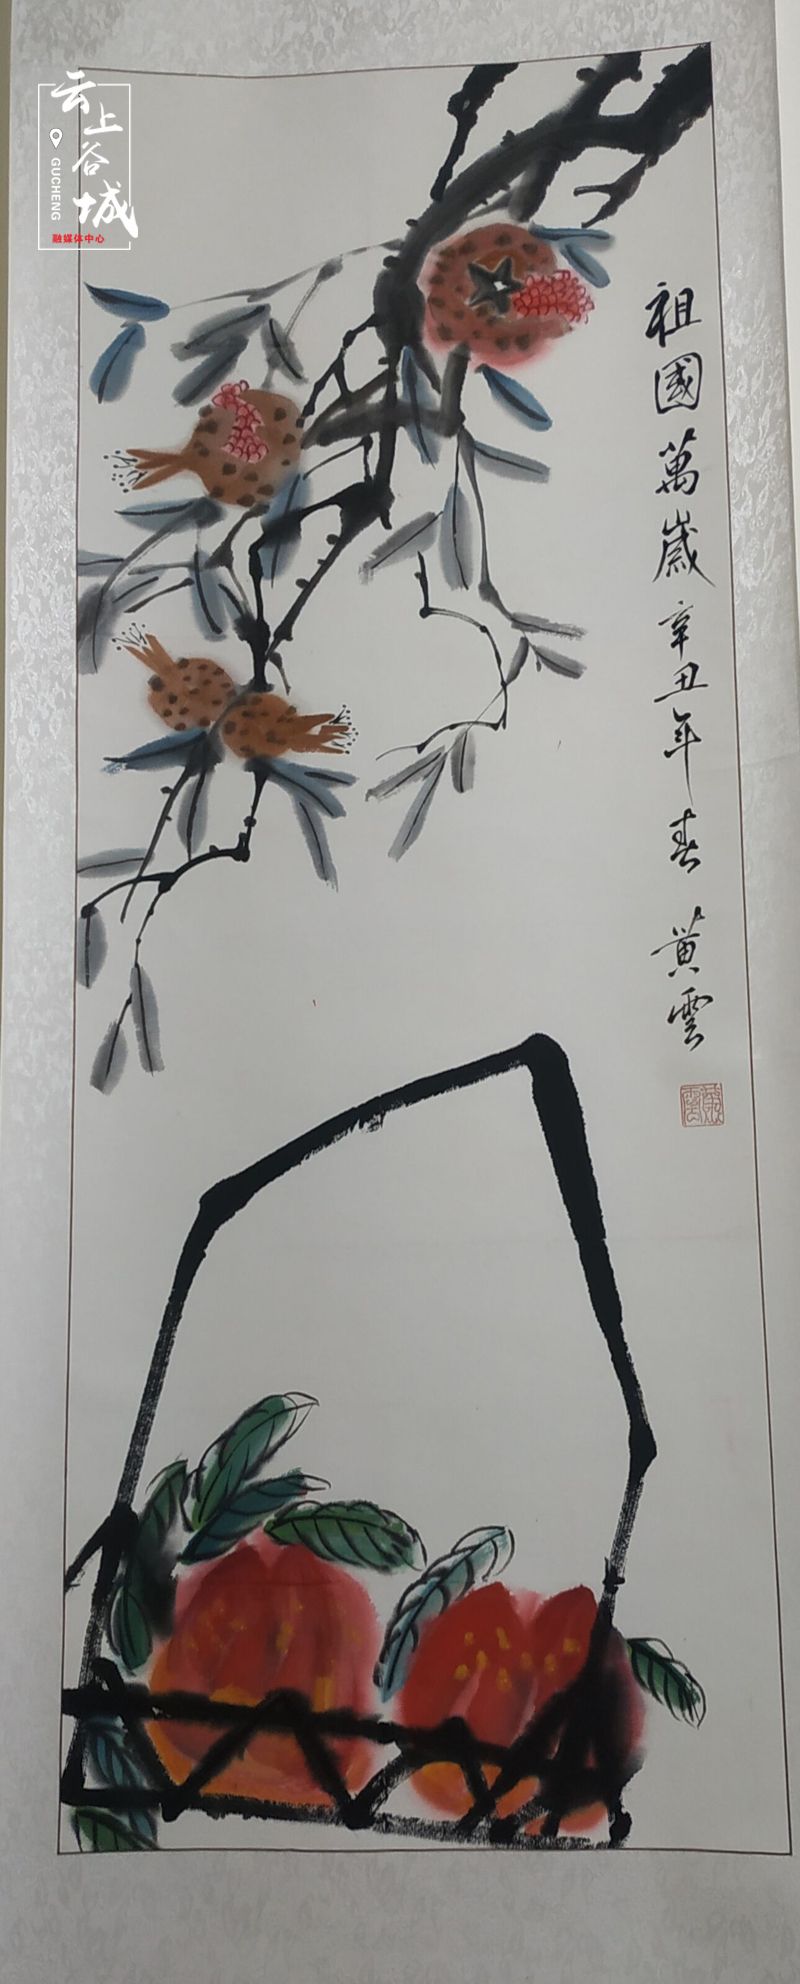 云上谷城
GUCHENG
融媒体中心
祖國萬歲辛丑年春 黃雲